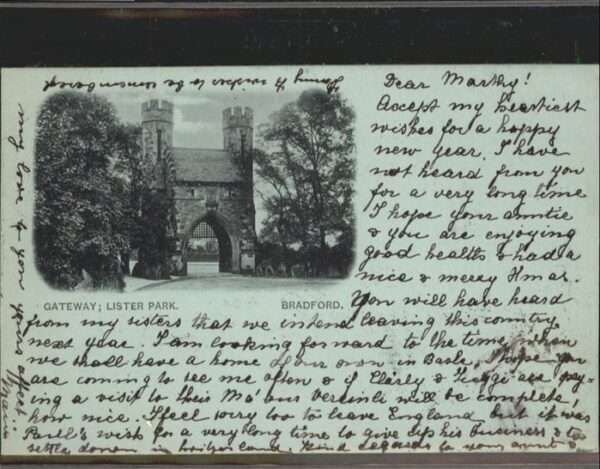 Dear Marthy!
Accept my heartiest
wishes for a happy
new year. I have
not heard from you
for a very long time
I hope your auntie
& you are enjoying
good health & had a
nice & merry Xmas.
GATEWAY; LISTER PARK. BRADFORD.
You will have heard
from my sisters that we intend leaving this country
next year. I am looking forward to the time, when
we shall have a home of our own in Basle, I hope you
are coming to see me often & if Clärly & are pay-
ing a visit to their Ma' our Vereinli will be complete,
how nice. I feel very to leave England but it was
wish for a very long time to give up his business & to
settle down in Switzerland. Kind regards to your aunt &
my love to you yours affect.